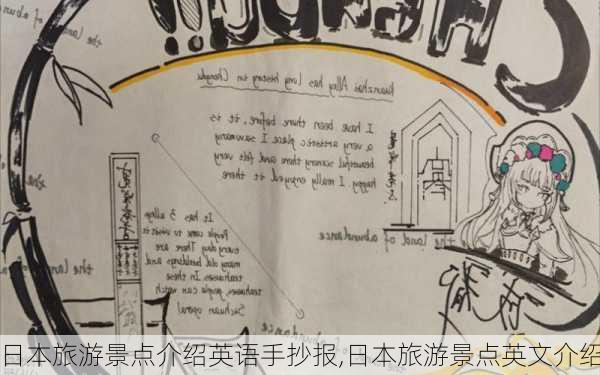 CHENGDU!!
the land of abundance
Kuanzhai Alley has long history in Chengdu
I have been there before, it is
a very artistic place I saw many
beautiful scenery there and felt very
happy. I really enjoyed it there
the land of abundance
It has 3 alleys
People come to visit it
every day There are
many old buildings and
teahouses. In these
teahouses, people can watch
Sichuan opera
the land
成都
abundance
日本旅游景点介绍英语手抄报,日本旅游景点英文介绍